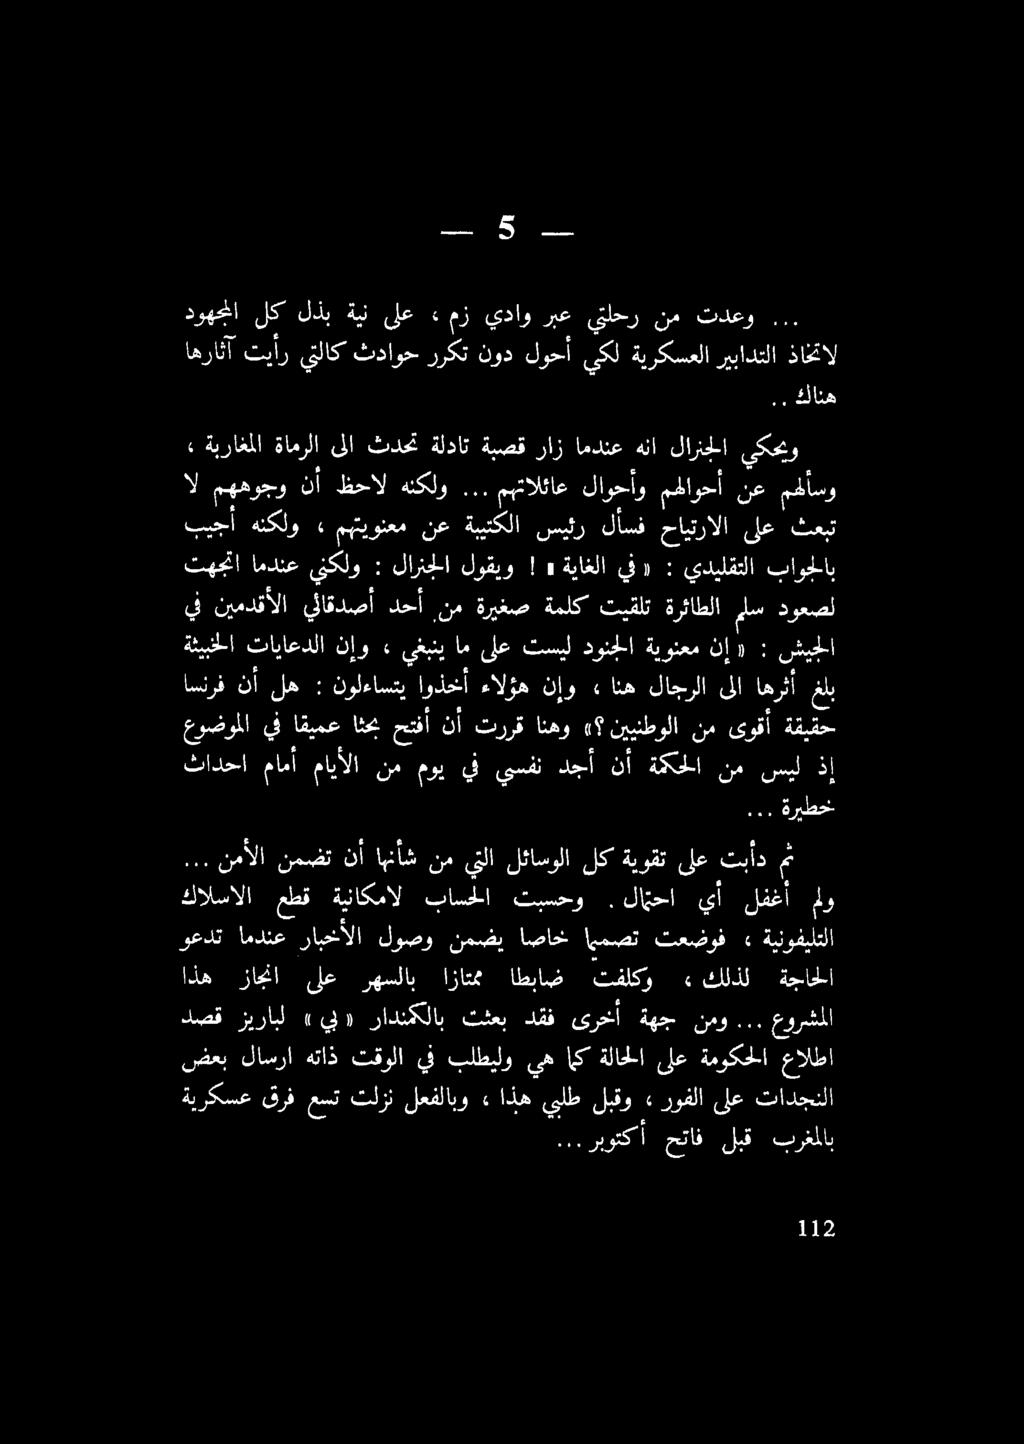 — 5 —
... وعدت من رحلتي عبر وادي زم ، على نية بذل كل المجهود
لاتخاذ التدابير العسكرية لكي أحول دون تكرر حوادث كالتي رأيت آثارها
هناك ..
ويحكي الجنرال انه عندما زار قصبة تادلة تحدث الى الرماة المغاربة ،
وسألهم عن أحوالهم وأحوال عائلاتهم ... ولكنه لاحظ أن وجوههم لا
تبعث على الارتياح فسأل رئيس الكتيبة عن معنويتهم ، ولكنه أجيب
بالجواب التقليدي : « في الغاية » ! ويقول الجنرال : ولكني عندما اتجهت
لصعود سلم الطائرة تلقيت كلمة صغيرة من أحد أصدقائي الأقدمين في
الجيش : « إن معنوية الجنود ليست على ما ينبغي ، وإن الدعايات الخبيثة
بلغ أثرها الى الرجال هنا ، وإن هؤلاء أخذوا يتساءلون : هل أن فرنسا
حقيقة أقوى من الوطنيين ؟» وهنا قررت أن أفتح بحثا عميقا في الموضوع
إذ ليس من الحكمة أن أجد نفسي في يوم من الأيام أمام احداث
خطيرة ...
ثم دأبت على تقوية كل الوسائل التي من شأنها أن تضمن الأمن ...
ولم أغفل أي احتمال . وحسبت الحساب لامكانية قطع الاسلاك
التليفونية ، فوضعت تصميما خاصا يضمن وصول الأخبار عندما تدعو
الحاجة لذلك ، وكلفت ضابطا ممتازا بالسهر على انجاز هذا
المشروع ... ومن جهة أخرى فقد بعثت بالكمندار « بي » لباريز قصد
اطلاع الحكومة على الحالة كما هي وليطلب في الوقت ذاته ارسال بعض
النجدات على الفور ، وقبل طلبي هذا ، وبالفعل نزلت تسع فرق عسكرية
بالمغرب قبل فاتح أكتوبر ...
112